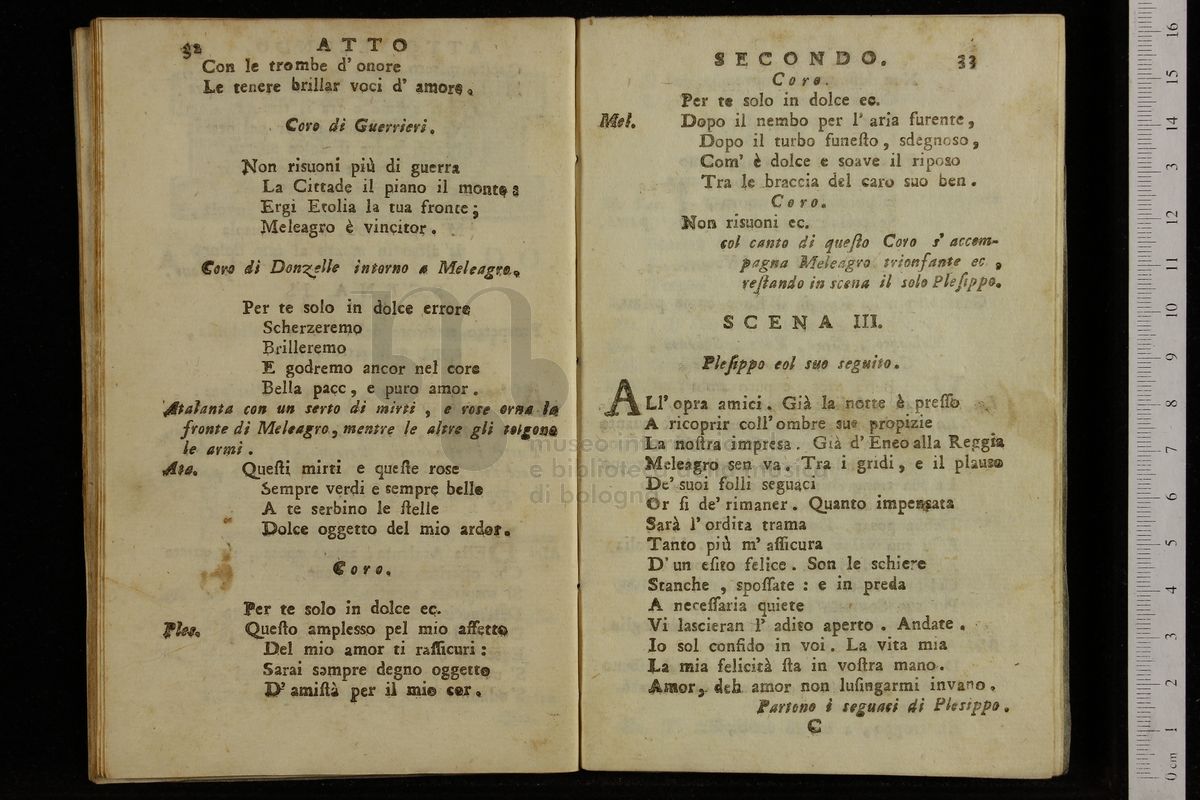 32 ATTO
Con le trombe d' onore
Le tenere brillar voci d' amore.
Coro di Guerrieri.
Non risuoni più di guerra
La Cittade il piano il monte:
Ergi Etolia la tua fronte;
Meleagro è vincitor.
Coro di Donzelle intorno a Meleagro.
Per te solo in dolce errore
Scherzeremo
Brilleremo
E godremo ancor nel core
Bella pace, e puro amor.
Atalanta con un serto di mirti, e rose orna la
fronte di Meleagro, mentre le altre gli tolgono
le armi.
Ata. Queſti mirti e queſte rose
Sempre verdi e sempre belle
A te serbino le ſtelle
Dolce oggetto del mio ardor.
Coro.
Per te solo in dolce ec.
Ples. Queſto amplesso pel mio affetto
Del mio amor ti raſſicuri:
Sarai sempre degno oggetto
D' amiſtà per il mio cor.
SECONDO. 33
Coro.
Per te solo in dolce ec.
Mel. Dopo il nembo per l' aria furente,
Dopo il turbo funeſto, sdegnoso,
Com' è dolce e soave il riposo
Tra le braccia del caro suo ben.
Coro.
Non risuoni ec.
col canto di queſto Coro s' accom-
pagna Meleagro trionfante ec,
reſtando in scena il solo Pleſippo.
SCENA III.
Pleſippo col suo seguito.
ALl' opra amici. Già la notte è preſſo
A ricoprir coll' ombre sue propizie
La noſtra impresa. Già d' Eneo alla Reggia
Meleagro sen va. Tra i gridi, e il plauso
De' suoi folli seguaci
Or ſi de' rimaner. Quanto impensata
Sarà l' ordita trama
Tanto più m' aſſicura
D' un eſito felice. Son le schiere
Stanche, spoſſate: e in preda
A neceſſaria quiete
Vi lascieran l' adito aperto. Andate.
Io sol confido in voi. La vita mia
La mia felicità ſta in voſtra mano.
Amor, deh amor non luſingarmi invano.
Partono i seguaci di Plesippo.
C
museo in
e biblioteca della musica
di bologna
0 cm 1 2 3 4 5 6 7 8 9 10 11 12 13 14 15 16